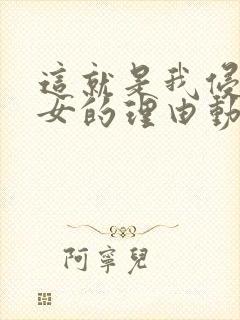 這就是我侵
女的理由動
阿寧兒